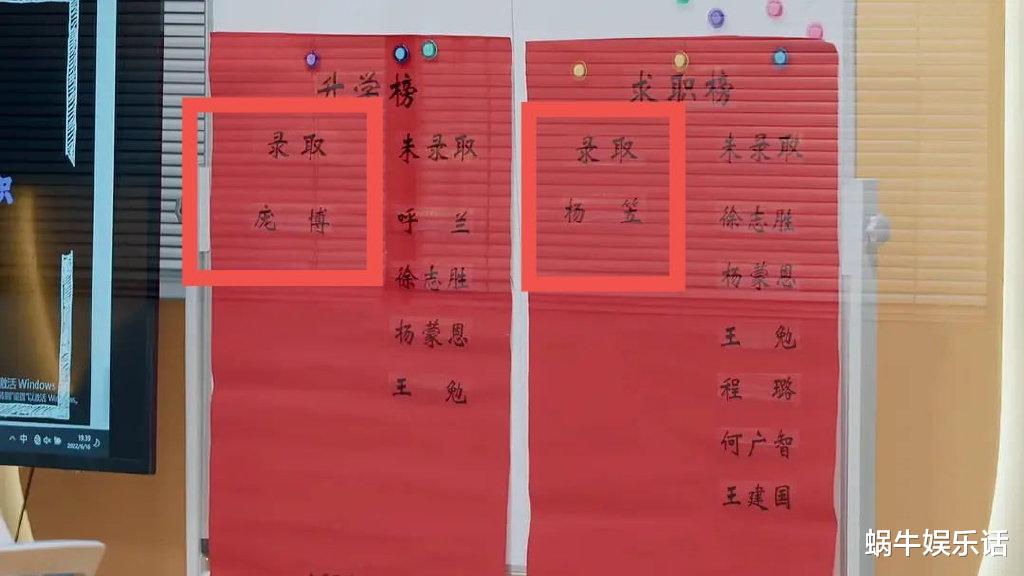 升学榜
录取
庞 博
未录取
呼 兰
徐志胜
杨蒙恩
王 勉
求职榜
录取
杨 笠
未录取
徐志胜
杨蒙恩
王 勉
程 璐
何广智
王建国
激活 Windows
中
19:39
2022/6/16
蜗牛娱乐话